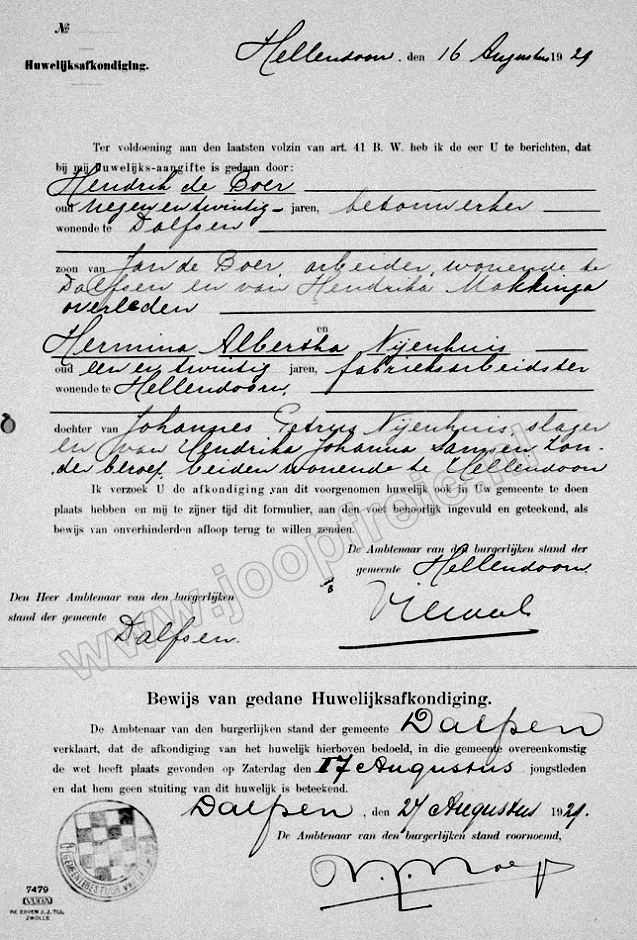 №
Huwelijksafkondiging.
Hellendoorn, den 16 Augustus 1929
Ter voldoening aan den laatsten volzin van art. 41 B. W. heb ik de eer U te berichten, dat
bij mij huwelijks-aangifte is gedaan door:
Hendrik de Boer
oud negen en twintig jaren, betonwerker
wonende te Dalfsen
zoon van Jan de Boer, arbeider, wonende te
Dalfsen en van Hendrika Makkinga
overleden
en
Hermina Albertha Nijenhuis
oud een en twintig jaren, fabrieksarbeidster
wonende te Hellendoorn,
dochter van Johannes Petrus Nijenhuis, slager
en van Hendrika Johanna Jansen zon-
der beroep, beiden wonende te Hellendoorn
Ik verzoek U de afkondiging van dit voorgenomen huwelijk ook in Uw gemeente te doen
plaats hebben en mij te zijner tijd dit formulier, aan den voet behoorlijk ingevuld en geteekend, als
bewijs van onverhinderden afloop terug te willen zenden.
De Ambtenaar van den burgerlijken stand der
gemeente Hellendoorn.
Den Heer Ambtenaar van den burgerlijken
stand der gemeente
Dalfsen.
www.joopfreie.nl
Bewijs van gedane Huwelijksafkondiging.
De Ambtenaar van den burgerlijken stand der gemeente Dalfsen
verklaart, dat de afkondiging van het huwelijk hierboven bedoeld, in die gemeente overeenkomstig
de wet heeft plaats gevonden op Zaterdag den 17 Augustus jongstleden
en dat hem geen stuiting van dit huwelijk is beteekend.
Dalfsen, den 27 Augustus 1929.
De Ambtenaar van den burgerlijken stand voornoemd,
GEMEENTEBESTUUR VAN
7479
VUGA
DE ERVEN J.J. TIJL
ZWOLLE